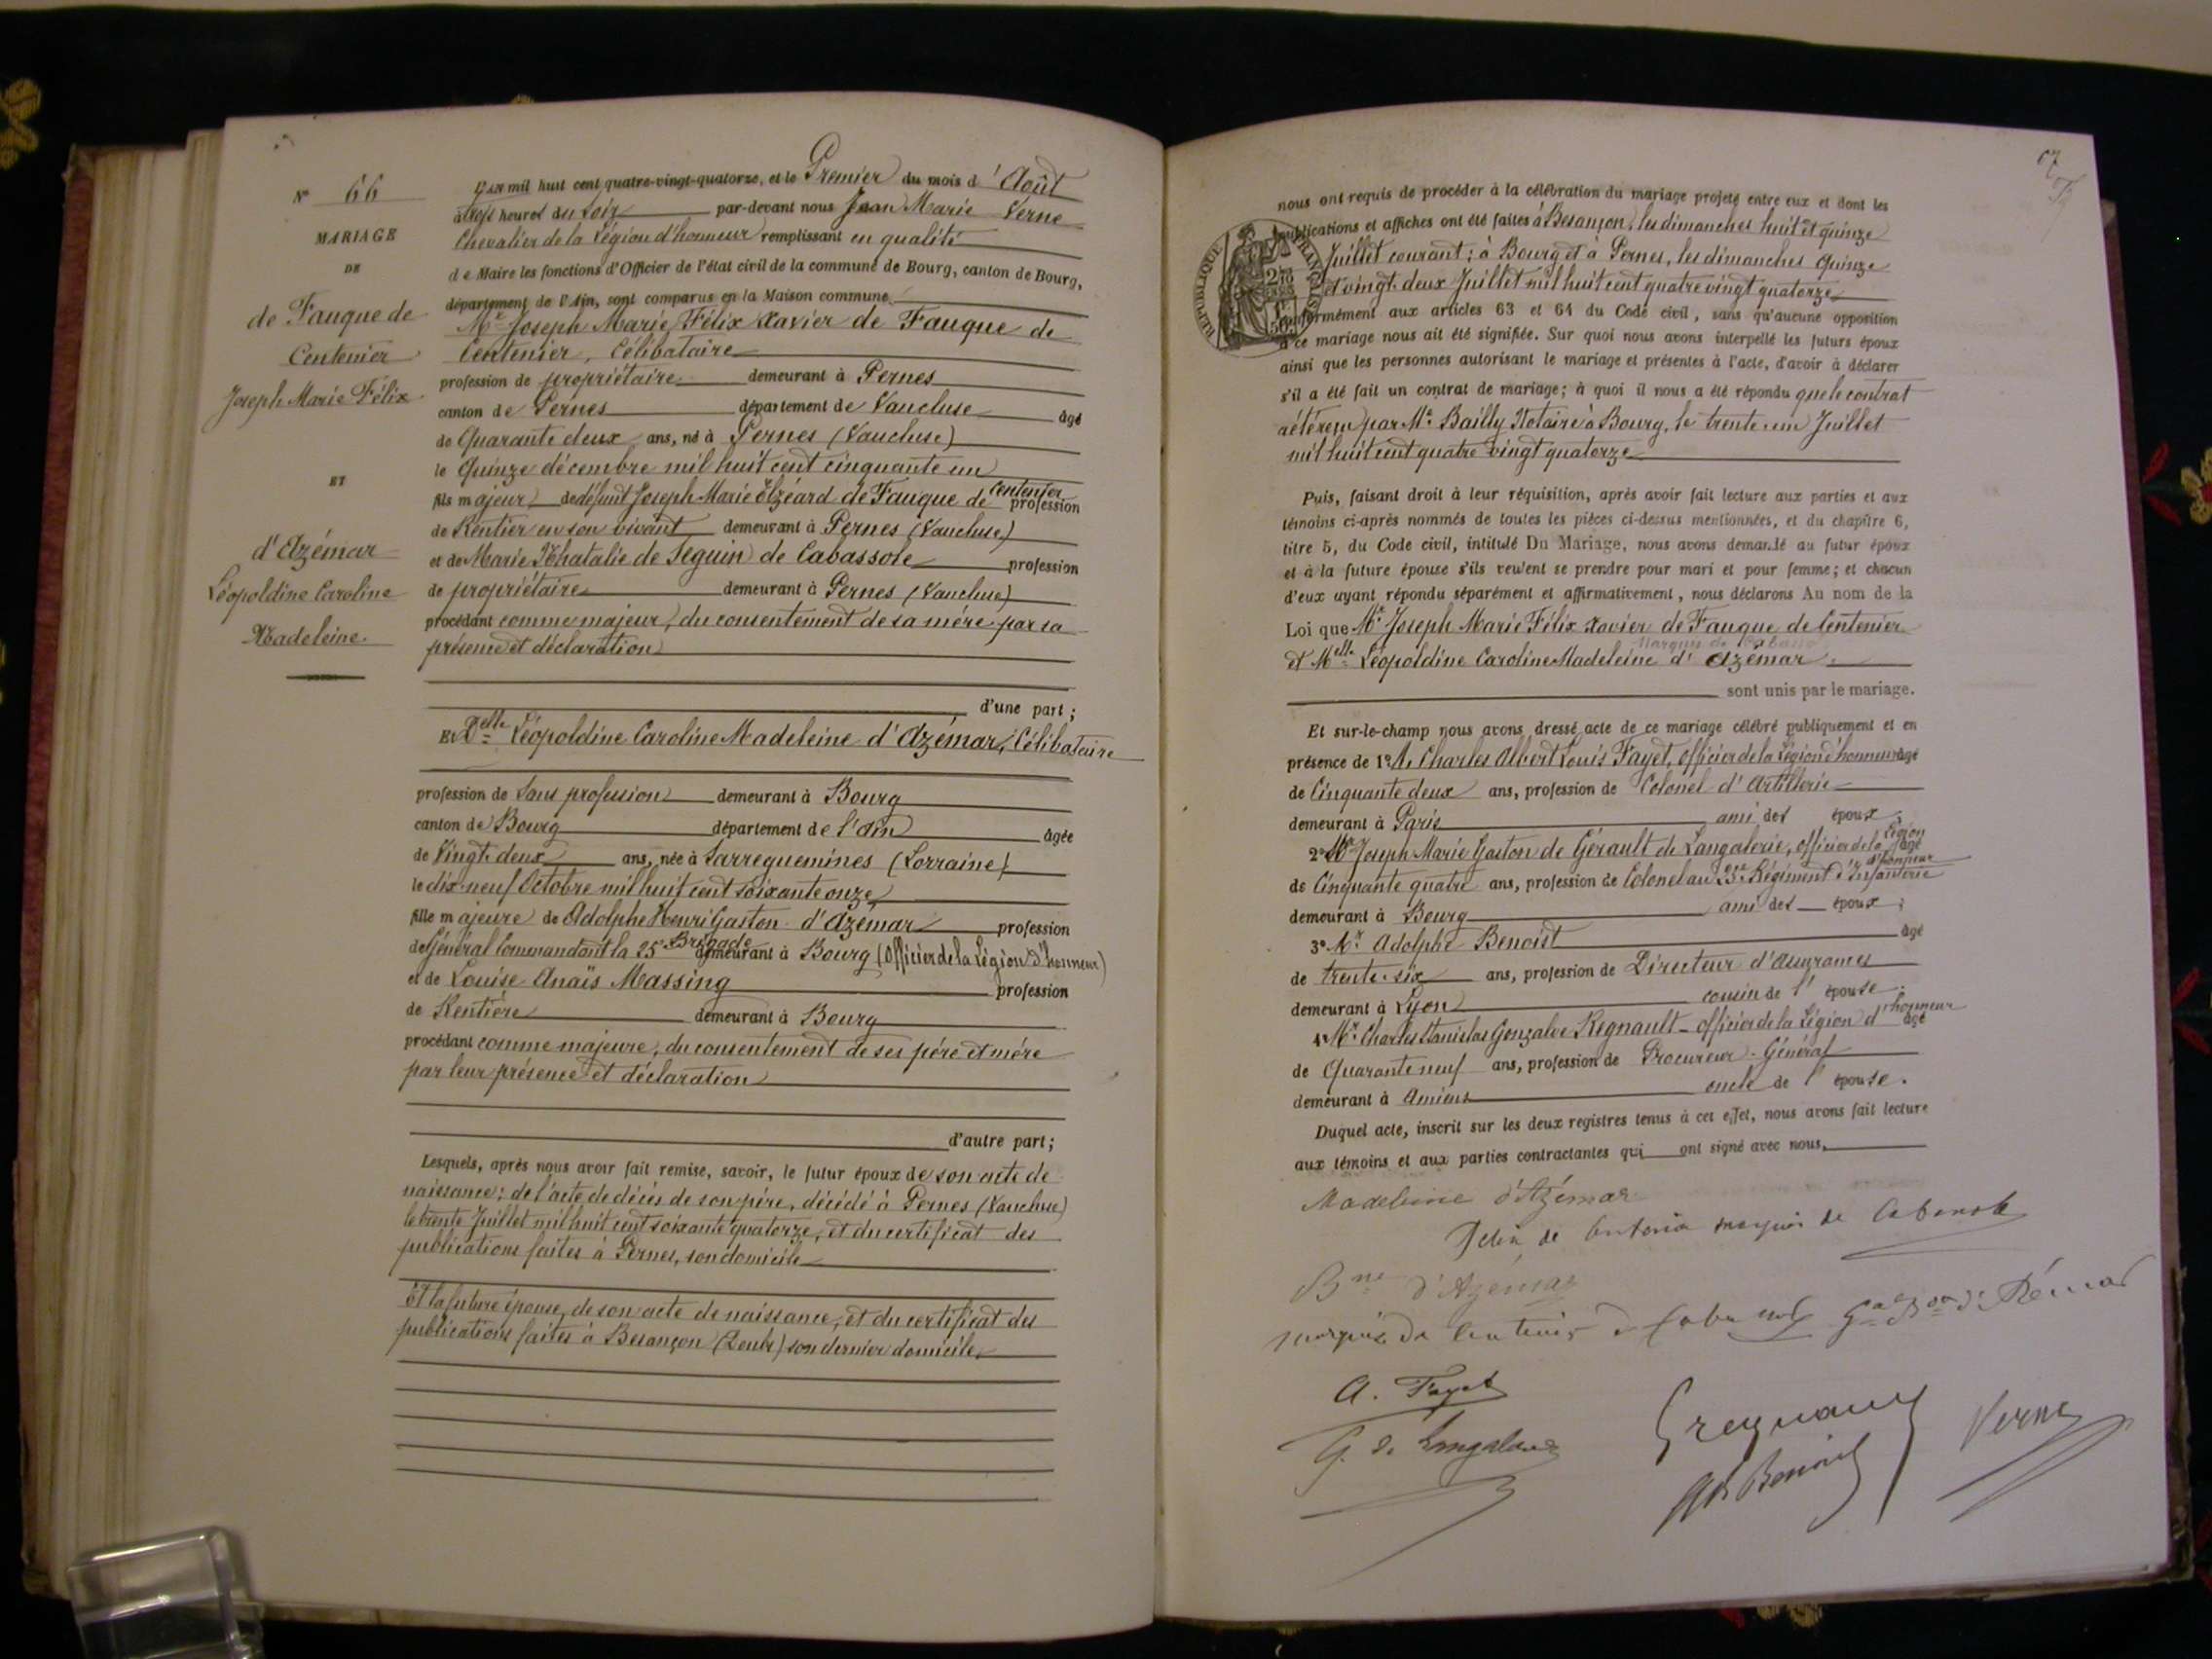 N° 66
MARIAGE
DE
de Fauque de
Centenier
Joseph Marie Félix
ET
d'Azémar
Léopoldine Caroline
Madeleine.
L'an mil huit cent quatre-vingt-quatorze, et le Premier du mois d'Août
à trois heures du soir par-devant nous Jean Marie Verne
Chevalier de la Légion d'honneur remplissant en qualité
de Maire les fonctions d'Officier de l'état civil de la commune de Bourg, canton de Bourg,
département de l'Ain, sont comparus en la Maison commune
Mr Joseph Marie Félix Xavier de Fauque de
Centenier, Célibataire
profession de propriétaire demeurant à Pernes
canton de Pernes département de Vaucluse âgé
de Quarante deux ans, né à Pernes (Vaucluse)
le Quinze décembre mil huit cent cinquante un
fils majeur de défunt Joseph Marie Elzéard de Fauque de Centenier profession
de Rentier en son vivant demeurant à Pernes (Vaucluse)
et de Marie Nhatalie de Seguin de Cabassole profession
de propriétaire demeurant à Pernes (Vaucluse)
procédant comme majeur, du consentement de sa mère par sa
présence et déclaration
d'une part;
Et Delle Léopoldine Caroline Madeleine d'Azémar, Célibataire
profession de Sans profession demeurant à Bourg
canton de Bourg département de l'Ain âgée
de Vingt deux ans, née à Sarreguemines (Lorraine)
le dix-neuf Octobre mil huit cent soixante onze
fille majeure de Adolphe Henri Gaston d'Azémar profession
de Général Commandant la 25e Brigade demeurant à Bourg (Officier de la Légion d'honneur)
et de Louise Anaïs Massing profession
de Rentière demeurant à Bourg
procédant comme majeure, du consentement de ses père et mère
par leur présence et déclaration
d'autre part;
Lesquels, après nous avoir fait remise, savoir, le futur époux de son acte de
naissance; de l'acte de décès de son père, décédé à Pernes (Vaucluse)
le trente Juillet mil huit cent soixante quatorze, et du certificat des
publications faites à Pernes, son domicile
Et la future épouse, de son acte de naissance, et du certificat des
publications faites à Besançon (Doubs) son dernier domicile,
67
nous ont requis de procéder à la célébration du mariage projeté entre eux et dont les
publications et affiches ont été faites à Besançon, les dimanches huit et quinze
Juillet courant; à Bourg et à Pernes, les dimanches Quinze
et vingt-deux Juillet mil huit cent quatre vingt quatorze
conformément aux articles 63 et 64 du Code civil, sans qu'aucune opposition
à ce mariage nous ait été signifiée. Sur quoi nous avons interpellé les futurs époux
ainsi que les personnes autorisant le mariage et présentes à l'acte, d'avoir à déclarer
s'il a été fait un contrat de mariage; à quoi il nous a été répondu que le contrat
a été reçu par Me Bailly Notaire à Bourg, le trente-un Juillet
mil huit cent quatre vingt quatorze
RÉPUBLIQUE FRANÇAISE
Puis, faisant droit à leur réquisition, après avoir fait lecture aux parties et aux
témoins ci-après nommés de toutes les pièces ci-dessus mentionnées, et du chapitre 6,
titre 5, du Code civil, intitulé Du Mariage, nous avons demandé au futur époux
et à la future épouse s'ils veulent se prendre pour mari et pour femme; et chacun
d'eux ayant répondu séparément et affirmativement, nous déclarons Au nom de la
Loi que Mr Joseph Marie Félix Xavier de Fauque de Centenier
et Melle Léopoldine Caroline Madeleine d'Azémar
sont unis par le mariage.
Et sur-le-champ nous avons dressé acte de ce mariage célébré publiquement et en
présence de 1° M. Charles Albert Louis Fayet, officier de la Légion d'honneur âgé
de Cinquante deux ans, profession de Colonel d'Artillerie
demeurant à Paris ami des époux;
2° Mr Joseph Marie Gaston de Gérault de Langalerie, officier de la Légion d'honneur âgé
de Cinquante quatre ans, profession de Colonel au 23e Régiment d'Infanterie
demeurant à Bourg ami des époux;
3° Mr Adolphe Benoist âgé
de trente-six ans, profession de Directeur d'assurances
demeurant à Lyon cousin de l'épouse;
4° Mr Charles Stanislas Gonzalve Regnault - officier de la Légion d'honneur âgé
de Quarante neuf ans, profession de Procureur-Général
demeurant à Amiens oncle de l'épouse.
Duquel acte, inscrit sur les deux registres tenus à cet effet, nous avons fait lecture
aux témoins et aux parties contractantes qui ont signé avec nous.
Madeleine d'Azémar
Félix de Centenier marquis de Cabassole
Bne d'Azémar
A. Fayet
G. de Langalerie
Gregnault
Ad. Benoist
Verne